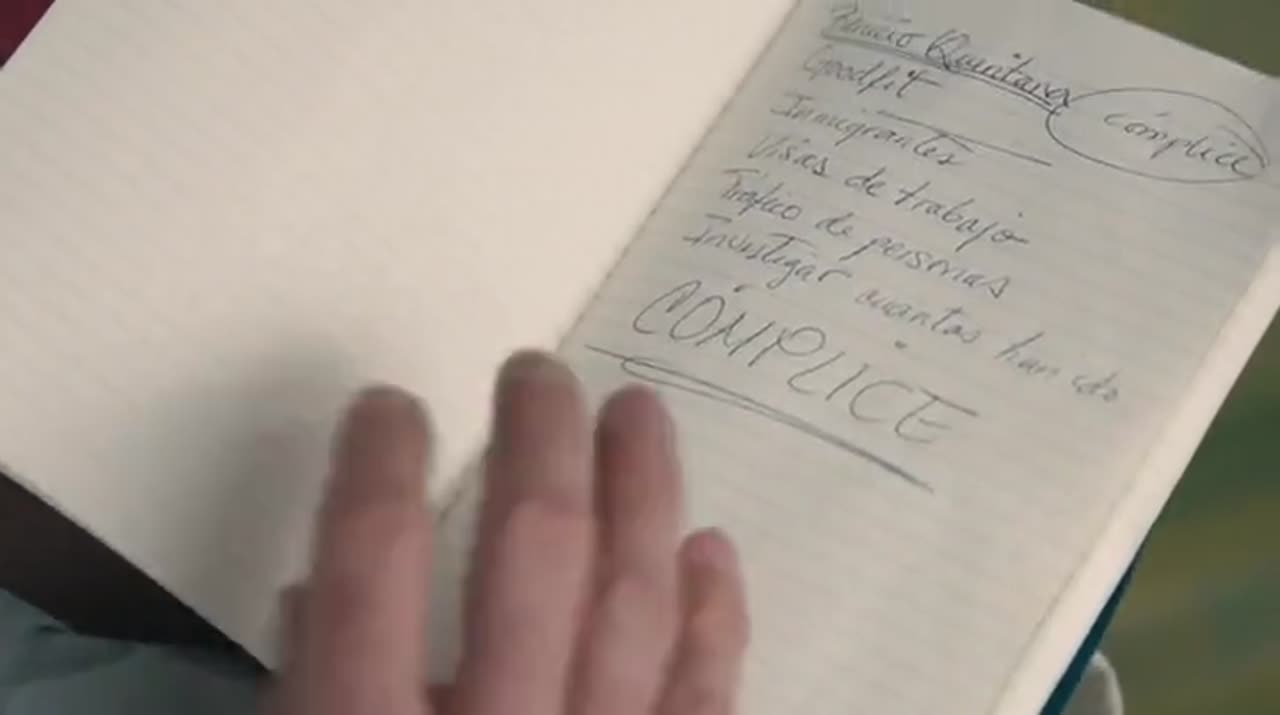 Quintana cómplice
Goodfit
Inmigrantes
Visas de trabajo
Tráfico de personas
Investigar cuantos han ido
CÓMPLICE